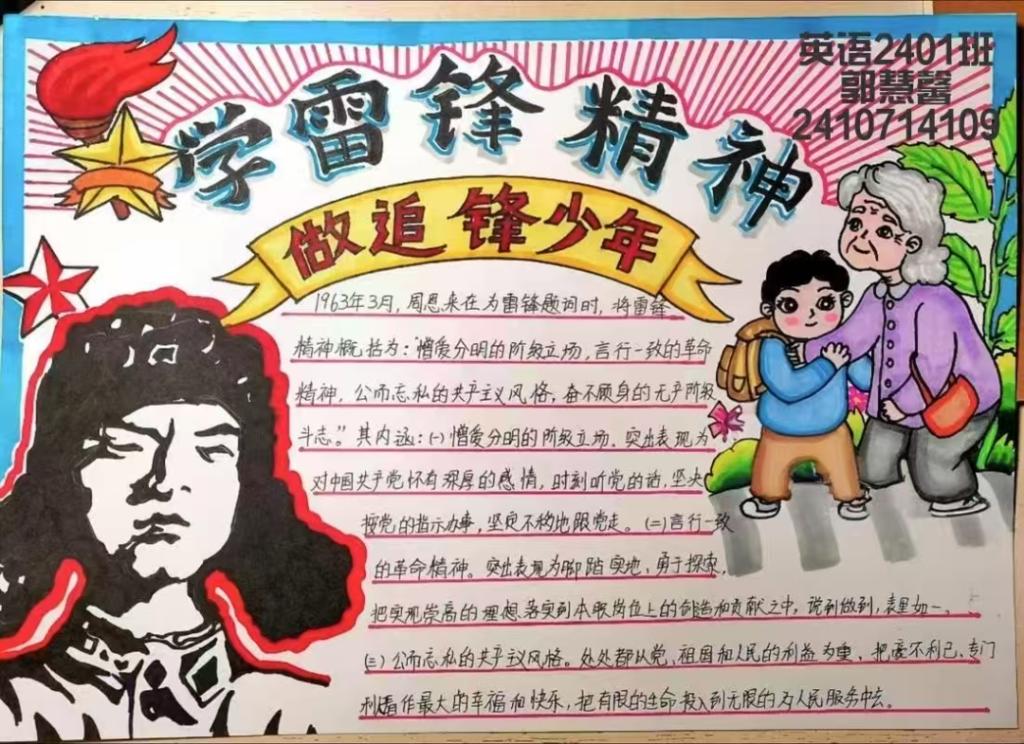 英语2401班
郭慧馨
2410714109
学雷锋精神
做追锋少年
1963年3月，周恩来在为雷锋题词时，将雷锋
精神概括为：“憎爱分明的阶级立场，言行一致的革命
精神，公而忘私的共产主义风格，奋不顾身的无产阶级
斗志。”其内涵：(一)憎爱分明的阶级立场。突出表现为
对中国共产党怀有深厚的感情，时刻听党的话，坚决
按党的指示办事，坚定不移地跟党走。(二)言行一致
的革命精神。突出表现为脚踏实地，勇于探索，
把实现崇高的理想落实到本职岗位上的创造和贡献之中，说到做到，表里如一。
(三)公而忘私的共产主义风格。处处都从党，祖国和人民的利益为重，把毫不利己、专门
利看作最大的幸福和快乐，把有限的生命投入到无限的为人民服务中去。